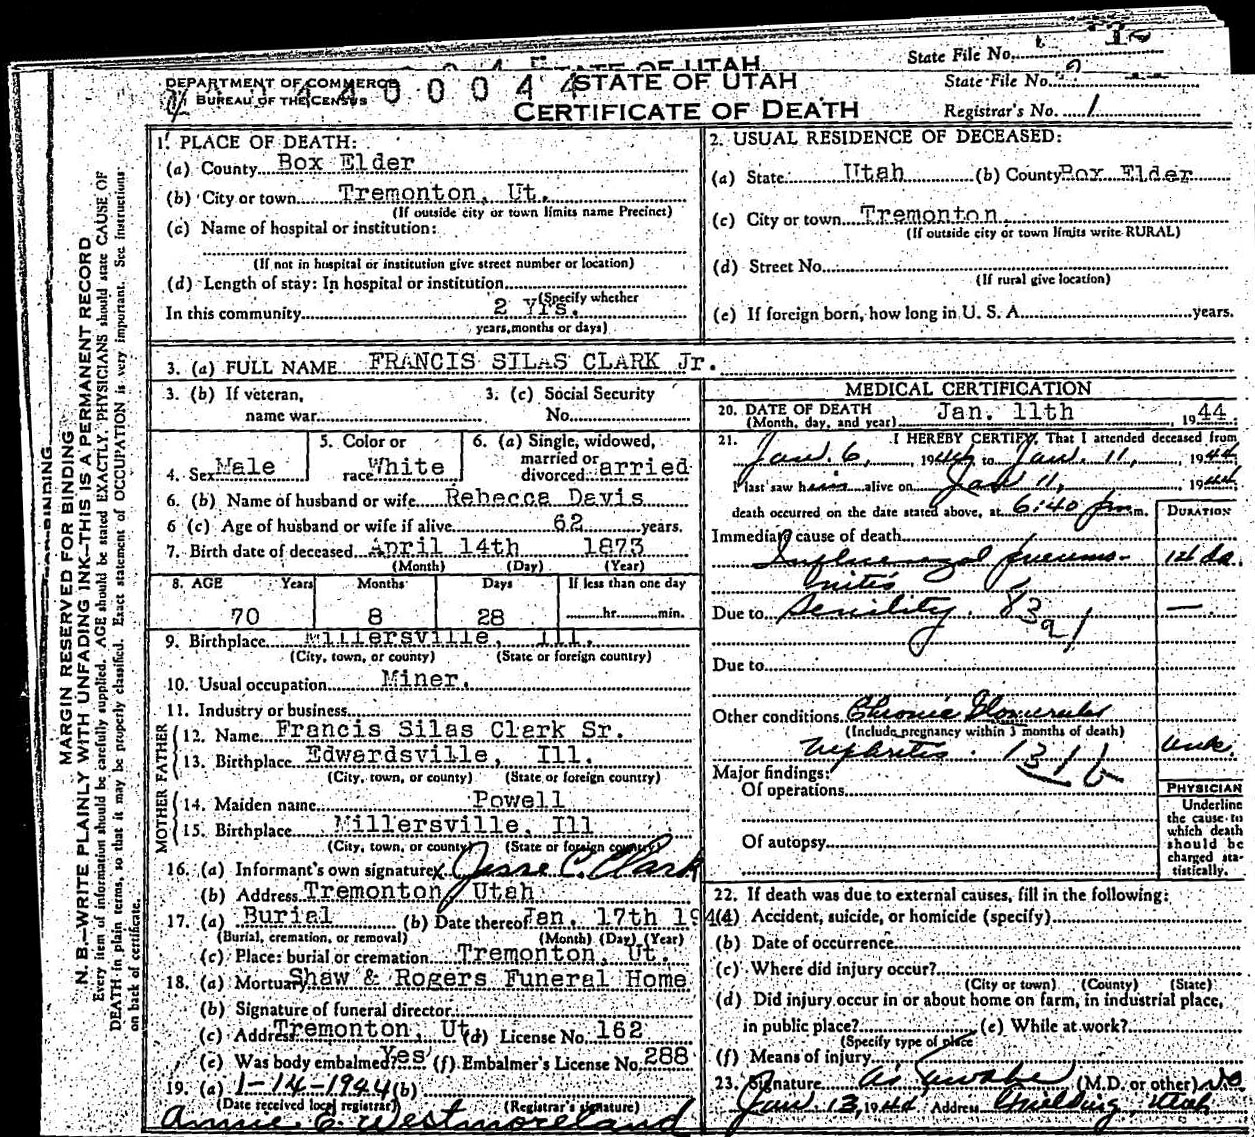 STATE OF UTAH
State File No.
DEPARTMENT OF COMMERCE
BUREAU OF THE CENSUS
4 4 0 0 0 4 4
STATE OF UTAH
CERTIFICATE OF DEATH
State File No.
Registrar's No. 1
MARGIN RESERVED FOR BINDING
N. B.—WRITE PLAINLY WITH UNFADING INK—THIS IS A PERMANENT RECORD
Every item of information should be carefully supplied. AGE should be stated EXACTLY. PHYSICIANS should state CAUSE OF
DEATH in plain terms, so that it may be properly classified. Exact statement of OCCUPATION is very important. See instructions
on back of certificate.
1. PLACE OF DEATH:
(a) County Box Elder
(b) City or town Tremonton, Ut.
(If outside city or town limits name Precinct)
(c) Name of hospital or institution:
(If not in hospital or institution give street number or location)
(d) Length of stay: In hospital or institution
(Specify whether
In this community 2 Yrs.
years, months or days)
2. USUAL RESIDENCE OF DECEASED:
(a) State Utah (b) County Box Elder
(c) City or town Tremonton
(If outside city or town limits write RURAL)
(d) Street No.
(If rural give location)
(e) If foreign born, how long in U. S. A. years.
3. (a) FULL NAME FRANCIS SILAS CLARK Jr.
3. (b) If veteran,
name war
3. (c) Social Security
No.
4. Sex Male
5. Color or
race White
6. (a) Single, widowed,
married or
divorced arried
6. (b) Name of husband or wife Rebecca Davis
6 (c) Age of husband or wife if alive 62 years.
7. Birth date of deceased April 14th 1873
(Month) (Day) (Year)
8. AGE Years Months Days If less than one day
70 8 28 hr. min.
9. Birthplace Millersville, Ill.
(City, town, or county) (State or foreign country)
10. Usual occupation Miner.
11. Industry or business
FATHER
12. Name Francis Silas Clark Sr.
13. Birthplace Edwardsville, Ill.
(City, town, or county) (State or foreign country)
MOTHER
14. Maiden name Powell
15. Birthplace Millersville, Ill
(City, town, or county) (State or foreign country)
16. (a) Informant's own signature x Jesse C. Clark
(b) Address Tremonton Utah
17. (a) Burial (b) Date thereof Jan. 17th 1944
(Burial, cremation, or removal) (Month) (Day) (Year)
(c) Place: burial or cremation Tremonton, Ut.
18. (a) Mortuary Shaw & Rogers Funeral Home
(b) Signature of funeral director
(c) Address Tremonton, Ut. (d) License No. 162
(e) Was body embalmed Yes (f) Embalmer's License No. 288
19. (a) 1-14-1944 (b)
(Date received local registrar) (Registrar's signature)
Annie E. Westmoreland
MEDICAL CERTIFICATION
20. DATE OF DEATH Jan. 11th , 1944.
(Month, day, and year)
21. I HEREBY CERTIFY, That I attended deceased from
Jan. 6, 1944 to Jan. 11, 1944
I last saw him alive on Jan 11, 1944
death occurred on the date stated above, at 6:40 pm m.
DURATION
Immediate cause of death
Influenzal pneumo- 14 da.
nitis
Due to Senility. 83a1 —
Due to
Other conditions Chronic Glomerular
(Include pregnancy within 3 months of death)
nephritis. 131b unk.
Major findings:
Of operations
Of autopsy
PHYSICIAN
Underline
the cause to
which death
should be
charged sta-
tistically.
22. If death was due to external causes, fill in the following:
(a) Accident, suicide, or homicide (specify)
(b) Date of occurrence
(c) Where did injury occur?
(City or town) (County) (State)
(d) Did injury occur in or about home on farm, in industrial place,
in public place? (e) While at work?
(Specify type of place
(f) Means of injury
23. Signature (M.D. or other)
Jan. 13, 1944 Address Fielding, Utah